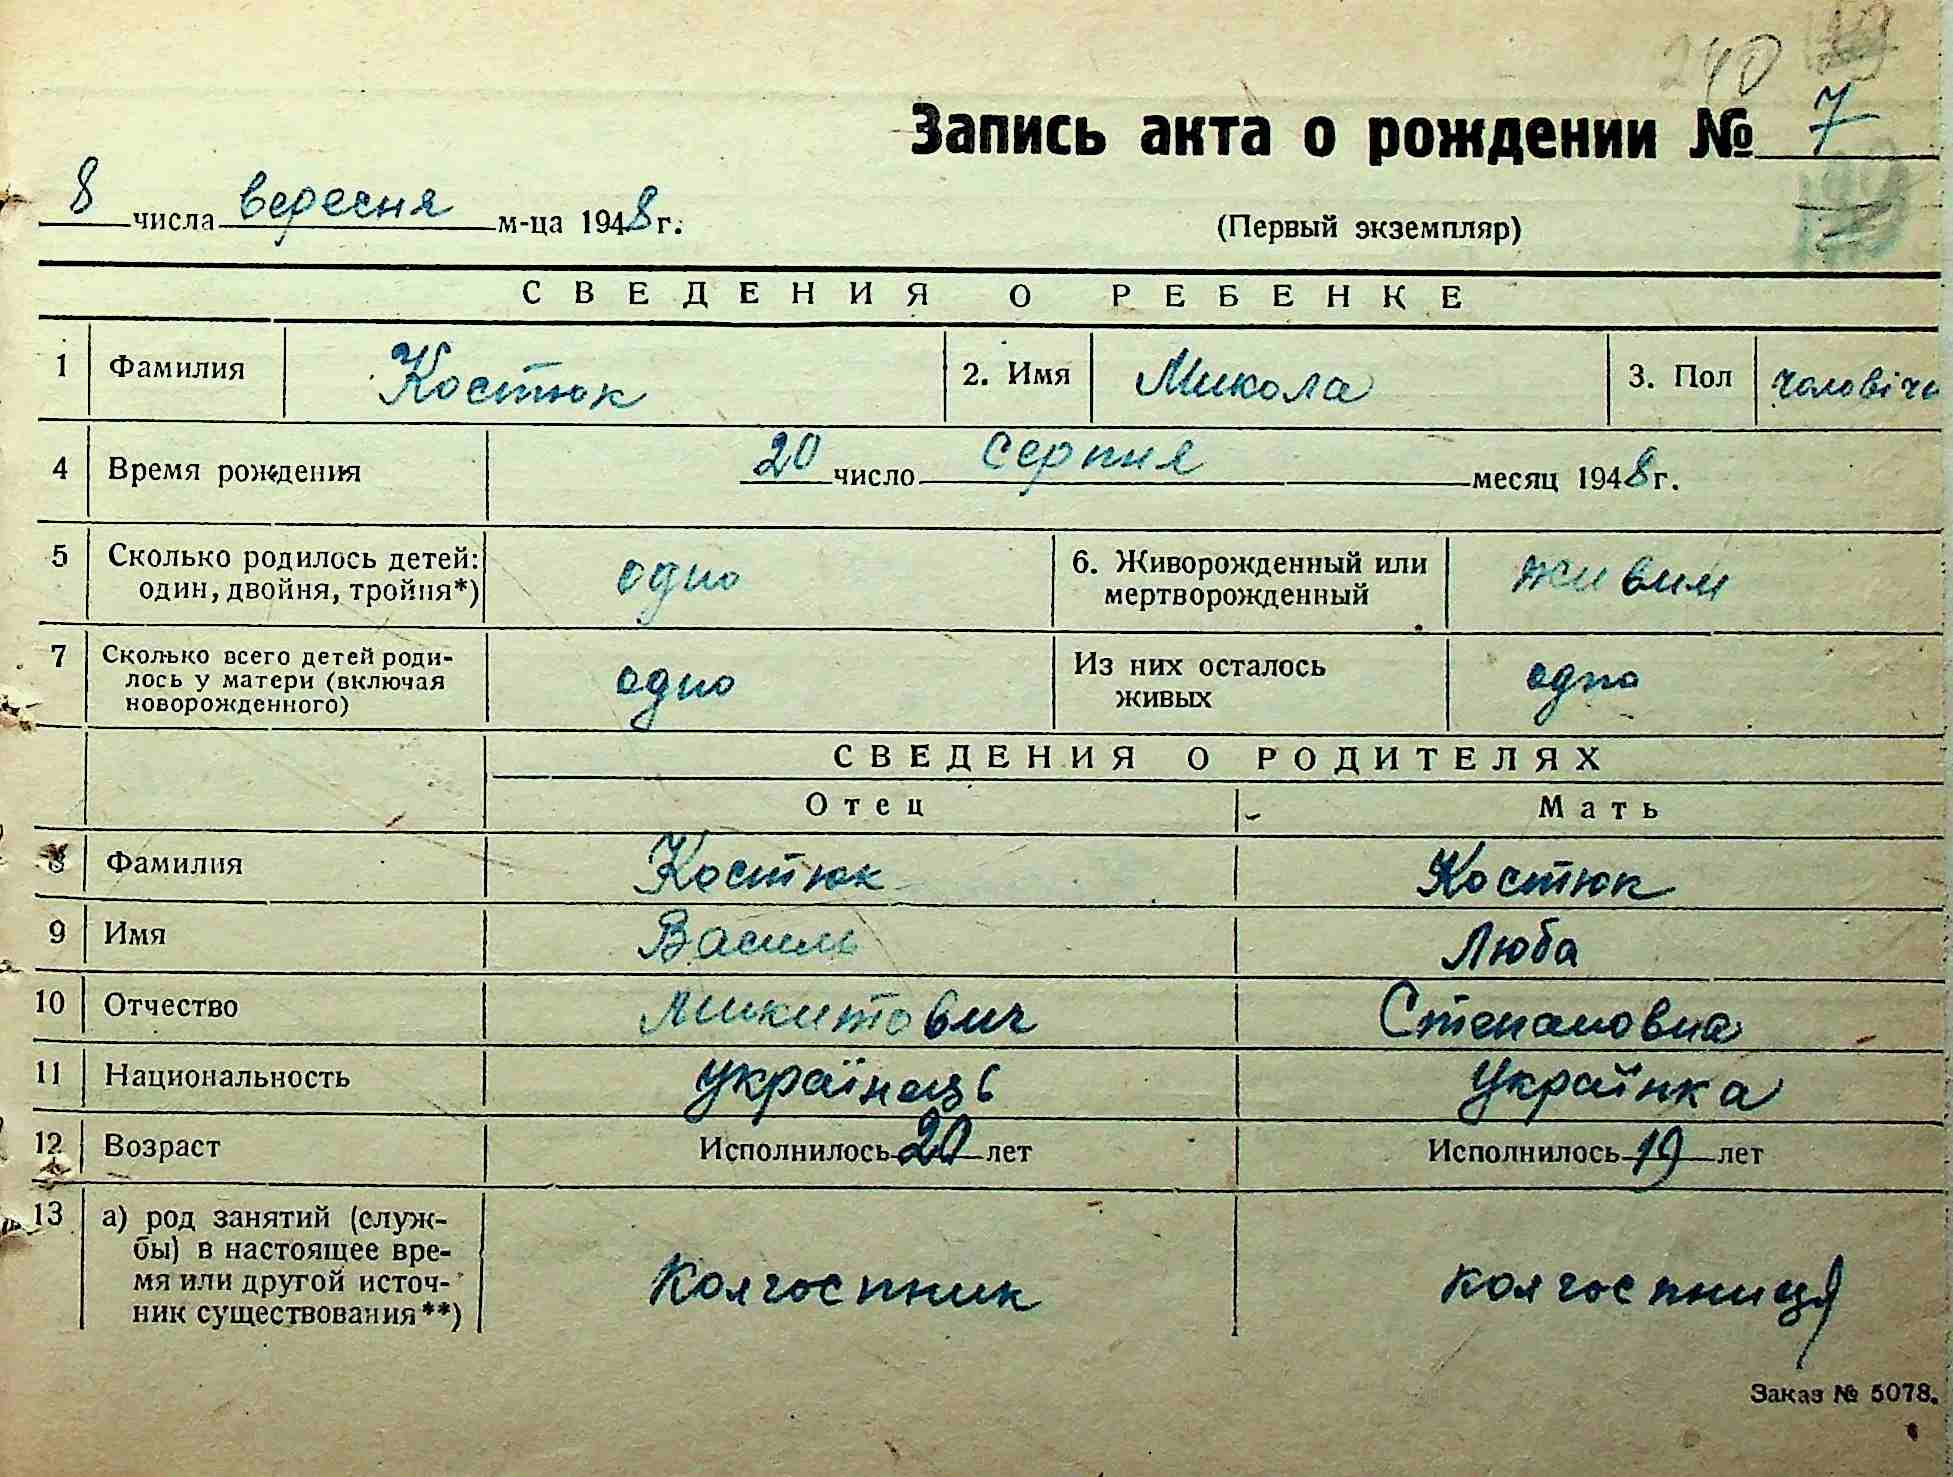 240
Запись акта о рождении № 7
8 числа вересня м-ца 1948 г.
(Первый экземпляр)
СВЕДЕНИЯ О РЕБЕНКЕ
1 Фамилия Костюк 2. Имя Микола 3. Пол чоловіч
4 Время рождения 20 число серпня месяц 1948 г.
5 Сколько родилось детей: одно 6. Живорожденный или живим
один, двойня, тройня*) мертворожденный
7 Сколько всего детей роди- одно Из них осталось одно
лось у матери (включая живых
новорожденного)
СВЕДЕНИЯ О РОДИТЕЛЯХ
Отец Мать
8 Фамилия Костюк Костюк
9 Имя Василь Люба
10 Отчество Микитович Степановна
11 Национальность українець Українка
12 Возраст Исполнилось 20 лет Исполнилось 19 лет
13 а) род занятий (служ-
бы) в настоящее вре-
мя или другой источ- Колгоспник колгоспниця
ник существования**)
Заказ № 5078.